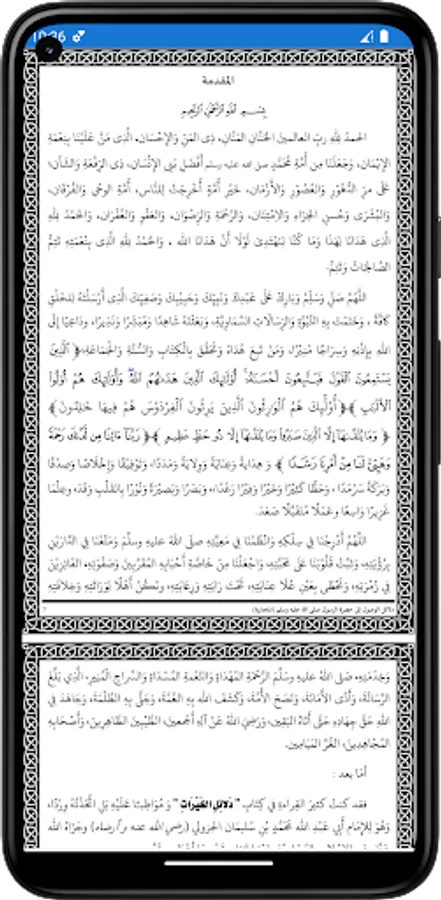 10:36
المقدمة
بِسْمِ اللهِ الرَّحْمَٰنِ الرَّحِيمِ
الحمدُ للهِ ربِّ العالمين الحَنَّانِ المَنَّانِ، ذِى المَنِّ وَالإِحْسَانِ، الَّذِى مَنَّ عَلَيْنَا بِنِعْمَةِ
الإِيْمَانِ، وَجَعَلَنَا مِن أُمَّةِ مُحَمَّدٍ صلى الله عليه وسلم أَفْضَلِ بَنِي الإِنْسَانِ، ذِى الرِّفْعَةِ وَالشَّانِ؛
عَلَى مَرِّ الدُّهُوْرِ وَالعُصُوْرِ وَالأَزْمَانِ، خَيْرِ أُمَّةٍ أُخْرِجَتْ لِلنَّاسِ، أُمَّةِ الوحْيِ وَالفُرْقَانِ،
وَالبُشْرَى وَحُسْنِ الجَزَاءِ وَالاِمْتِنَانِ، وَالرَّحْمَةِ وَالرِّضْوَانِ، وَالعَفْوِ وَالغُفْرَانِ، وَالحَمْدُ للهِ
الَّذِى هَدَانَا لِهَذَا وَمَا كُنَّا لِنَهْتَدِيَ لَوْلَا أَنْ هَدَانَا الله ، وَالحَمْدُ للهِ الَّذِي بِنِعْمَتِهِ تَتِمُّ
الصَّالِحَاتُ وَتَتِمُّ.
اللَّهُمَّ صَلِّ وَسَلِّمْ وَبَارِكْ عَلَى عَبْدِكَ وَنَبِيِّكَ وَحَبِيْبِكَ وَصَفِيِّكَ الَّذِى أَرْسَلْتَهُ لِلخَلْقِ
كَافَّةً ، وَخَتَمْتَ بِهِ النُّبُوَّةَ وَالرِّسَالَاتِ السَّمَاوِيَّةَ، وَبَعَثْتَهُ شَاهِدًا وَمُبَشِّرًا وَنَذِيْرًا، وَدَاعِيًا إِلَى
اللهِ بِإِذْنِهِ وَسِرَاجًا مُنِيْرًا، وَمَنْ تَبِعَ هُدَاهُ وَتَحَقَّقَ بِالْكِتَابِ وَالسُّنَّةِ وَالْجَمَاعَةِ،﴿ ٱلَّذِينَ
يَسْتَمِعُونَ ٱلْقَوْلَ فَيَتَّبِعُونَ أَحْسَنَهُۥٓ أُو۟لَٰٓئِكَ ٱلَّذِينَ هَدَىٰهُمُ ٱللَّهُ وَأُو۟لَٰٓئِكَ هُمْ أُو۟لُوا۟
ٱلْأَلْبَٰبِ ﴾﴿ أُو۟لَٰٓئِكَ هُمُ ٱلْوَٰرِثُونَ ٱلَّذِينَ يَرِثُونَ ٱلْفِرْدَوْسَ هُمْ فِيهَا خَٰلِدُونَ﴾
﴿ وَمَا يُلَقَّىٰهَآ إِلَّا ٱلَّذِينَ صَبَرُوا۟ وَمَا يُلَقَّىٰهَآ إِلَّا ذُو حَظٍّ عَظِيمٍ ﴾﴿ رَبَّنَآ ءَاتِنَا مِن لَّدُنكَ رَحْمَةً
وَهَيِّئْ لَنَا مِنْ أَمْرِنَا رَشَدًا ﴾ وَ هِدَايَةً وَعِنَايَةً وَوِلَايَةً وَمَدَدًا، وَتَوْفِيْقًا وَإِخْلَاصًا وَصِدْقًا
وَبَرَكَةً سَرْمَدًا ، وَحَظًّا كَثِيْرًا وَخَيْرًا وَفِيْرًا رَغَدًا، وَبَصَرًا وَبَصِيْرَةً وَنُوْرًا بِالقَلْبِ وَقَدَ، وَعِلْمًا
غَزِيْرًا وَاسِعًا وَعَمَلًا مُتَقَبَّلًا صَعَدَ.
اللَّهُمَّ أَدْرِجْنَا فِي سِلْكِهِ وَانْظِمْنَا فِي مَعِيَّتِهِ صلَّى اللهُ عليهِ وسلَّمَ وَمَتِّعْنَا فِي الدَّارَيْنِ
بِرُؤْيَتِهِ، وَثَبِّتْ قُلُوْبَنَا عَلَى مَحَبَّتِهِ، وَاجْعَلْنَا مِنْ خَاصَّةِ أَحْبَابِهِ المُقَرَّبِيْنَ وَصَفْوَتِهِ، الفَائِزِيْنَ
فِي زُمْرَتِهِ، وَنَحْظَى بِعَيْنِ عُلَا عِنَايَتِهِ، تَحْتَ رَايَتِهِ وَرِعَايَتِهِ، وَنَكُنْ أَهْلًا لِوِرَاثَتِهِ وَخِلَافَتِهِ
دلائل الوصول إلى حضرة الرسول صلى الله عليه وسلم
وَخِدْمَتِهِ، صلى اللهُ عليهِ وسلَّمَ الرَّحْمَةِ المُهْدَاةِ وَالنِّعْمَةِ المُسْدَاةِ وَالسِّرَاجِ المُنِيْرِ، الَّذِي بَلَّغَ
الرِّسَالَةَ، وَأَدَّى الأَمَانَةَ، وَنَصَحَ الأُمَّةَ، وَكَشَفَ الله بِهِ الغُمَّةَ، وَجَلَّى بِهِ الظُّلْمَةَ، وَجَاهَدَ فِي
اللهِ حَقَّ جِهَادِهِ حَتَّى أَتَاهُ اليَقِيْنَ، وَرَضِيَ اللهُ عَنْ آلِهِ أَجْمَعِينَ، الطَّيِّبِيْنَ الطَّاهِرِيْنَ، وَأَصْحَابِهِ
المُجَاهِدِيْنَ، الغُرِّ المَيَامِيْنِ.
أمّا بعد :
فقد كنتُ كثيرَ القِراءةِ فِي كِتَابِ " دَلَائِلِ الخَيْرَاتِ " وَ مُوَاظِبًا عَلَيْهِ بَلِ اتَّخَذْتُهُ وِرْدًا،
وَهُوَ لِلإِمَامِ أَبِي عَبْدِ اللهِ مُحَمَّدِ بْنِ سُلَيْمَانَ الجزولي (رضي الله عنه وأرضاه) وَجَزَاهُ اللهُ